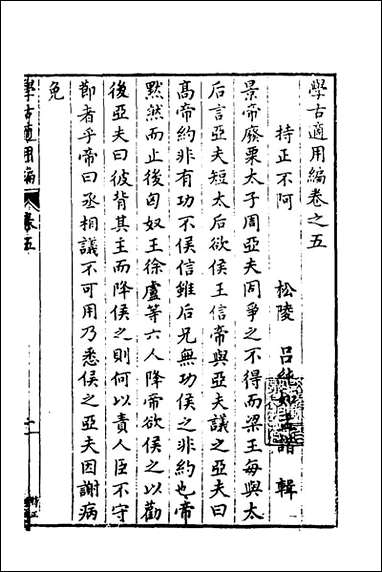 學古適用編卷之五
持正不阿 松陵 呂純如 輯
景帝廢栗太子周亞夫固爭之不得而梁王每與太
后言亞夫短太后欲侯王信帝與亞夫議之亞夫曰
髙帝約非有功不侯信雖后兄無功侯之非約也帝
黙然而止後匈奴王徐盧等六人降帝欲侯之以勸
後亞夫曰彼背其主而降侯之則何以責人臣不守
節者乎帝曰丞相議不可用乃悉侯之亞夫因謝病
免
學古適用編 卷五 一